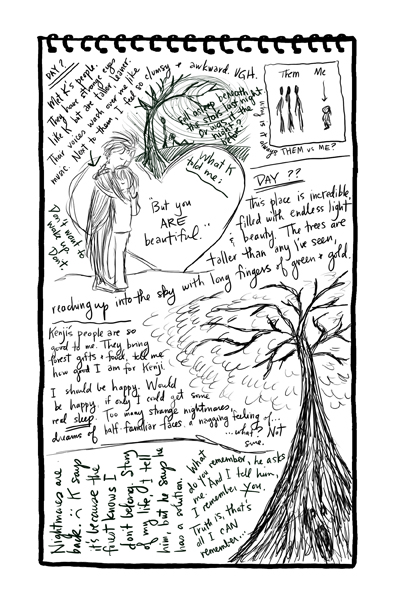 DAY ?
Met K's people.
They have strange eyes
like K but are taller, leaner.
Their voices wash over me like
music. Next to them I feel so clumsy + awkward. UGH.
Fell asleep beneath
the stars last night
Or was it the
night
before?
Them Me
why is it always THEM vs ME?
What K
told me:
"But you
ARE
beautiful."
Don't want to
wake up.
Don't.
DAY ??
This place is incredible,
filled with endless light
& beauty. The trees are
taller than any I've seen,
reaching up into the sky with long fingers of green + gold.
Kenji's people are so
good to me. They bring
forest gifts + food, tell me
how good I am for Kenji.
I should be happy. Would
be happy, if only I could get some
real sleep. Too many strange nightmares...
dreams of half-familiar faces, a nagging feeling of...
...what? Not
sure.
Nightmares are
back. K says
it's because the
forest knows I
don't belong. Story
of my life, I tell
him, but he says he
has a solution.
What
do you remember, he asks
me. And I tell him,
I remember you.
Truth is, that's
all I CAN
remember...